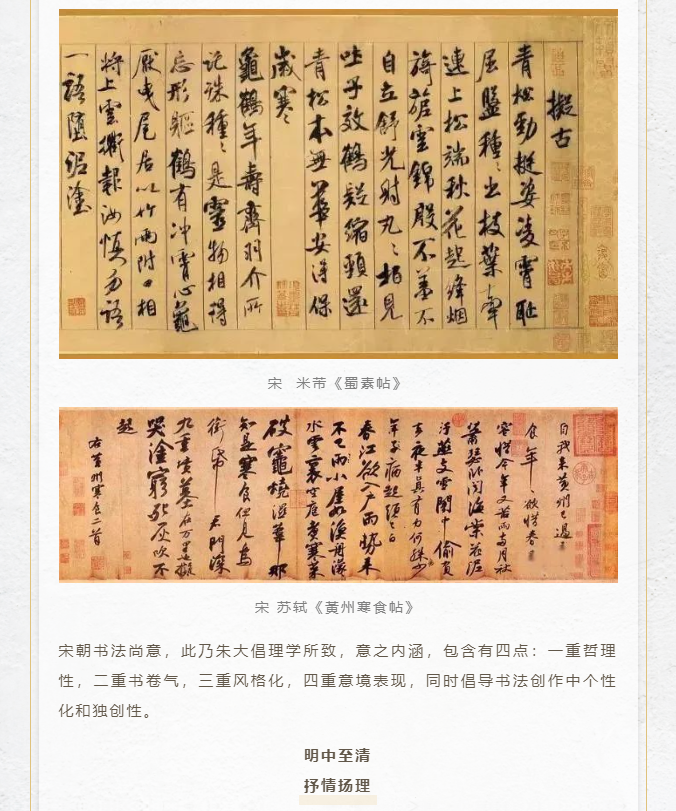 擬古
青松勁挺姿凌霄耻
屈盤種〻出枝葉牽
連上松端秋花起絳烟
旖旎雲錦殷不羞不
自立舒光射丸〻栢見
吐子效鶴疑縮頸還
青松本無華安得保
歲寒〻
龜鶴年壽齊羽介所
託殊種〻是靈物相得
忘形軀鶴有冲霄心龜
厭曳尾居以竹兩附口相
將上雲衢報汝慎勿語
一語墮泥塗
宋 米芾《蜀素帖》
自我来黄州已過
食年〻欲惜春
容惜今年又苦雨兩月秋
蕭瑟卧聞海棠花泥
汙燕支雪闇中偷負
去夜半真有力何殊少
年子病起頭已白
春江欲入户雨勢来
不已雨小屋如漁舟濛〻
水雲裏空庖煮寒菜
破竈燒濕葦那
知是寒食但見烏
銜帋君門深
九重墳墓在万里也擬
哭塗窮死灰吹不
起
右黄州寒食二首
宋 苏轼《黄州寒食帖》
宋朝书法尚意，此乃朱大倡理学所致，意之内涵，包含有四点：一重哲理
性，二重书卷气，三重风格化，四重意境表现，同时倡导书法创作中个性
化和独创性。
明中至清
抒情场理